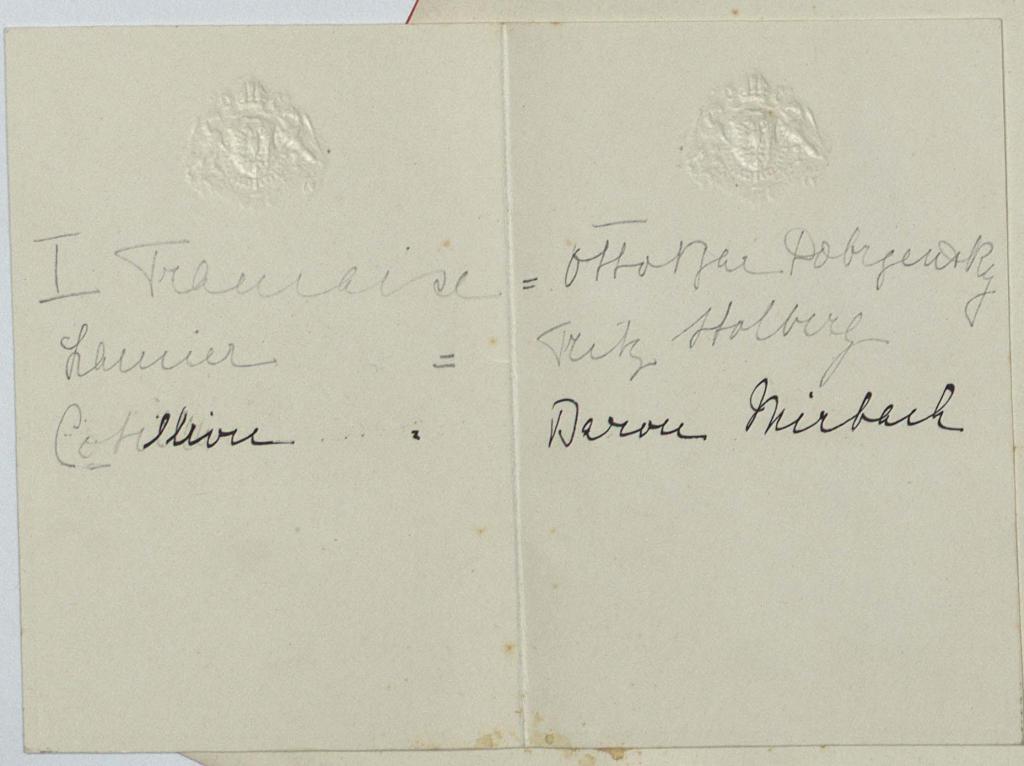 I Francaise = Ottokar Dobrzensky
Lancier = Fritz Stolberg
Cotillion .... : Baron Mirbach